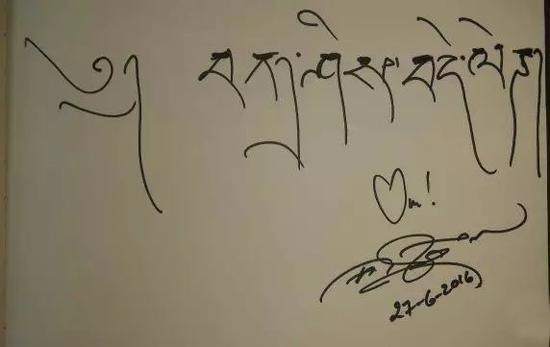 ༄། བཀྲ་ཤིས་བདེ་ལེགས།
Om!
27-6-2016